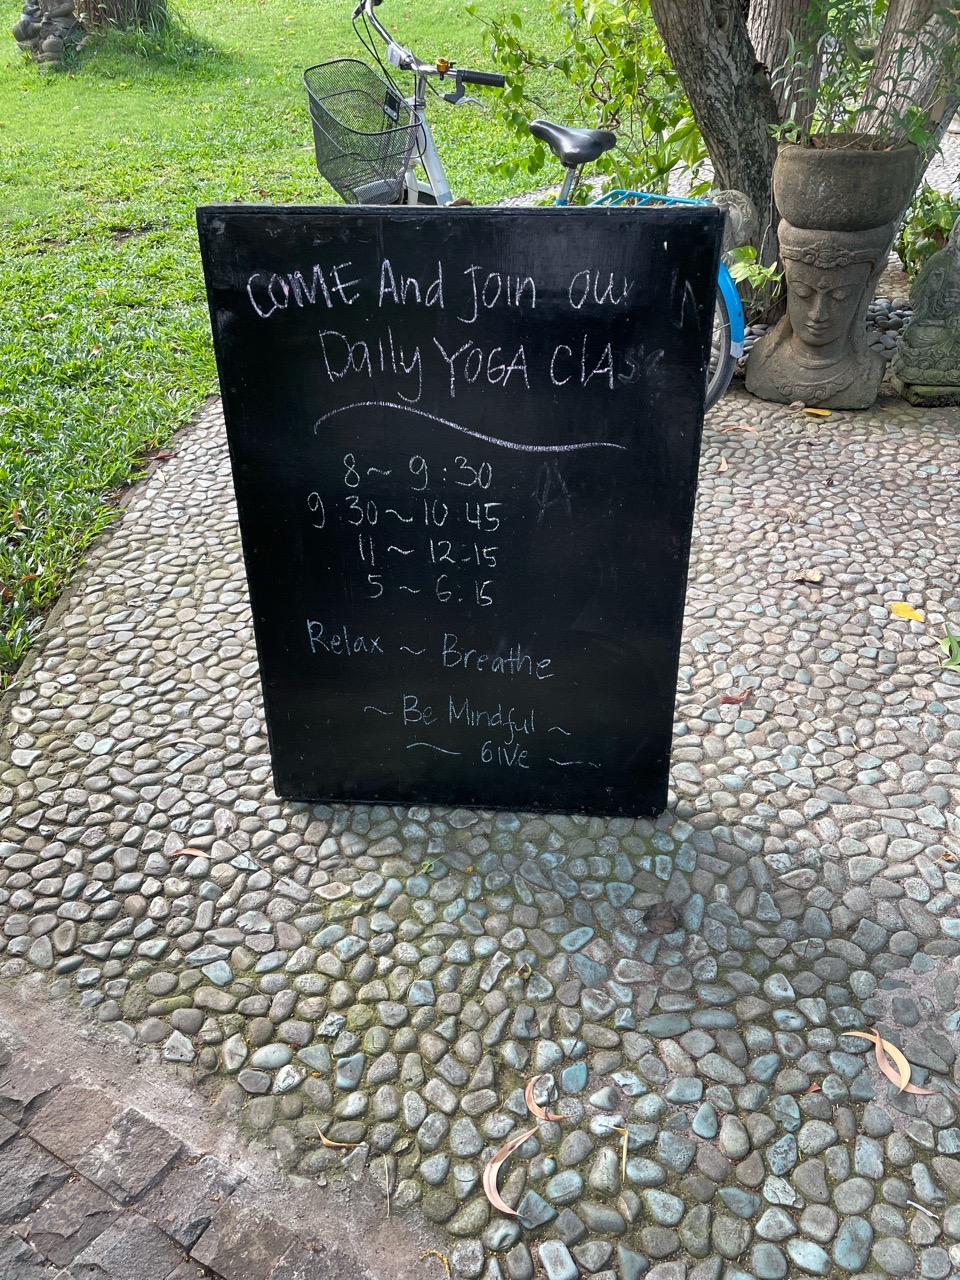 COME And Join our
Daily YOGA Class
8~ 9:30
9:30~10:45
11 ~ 12:15
5 ~ 6:15
Relax ~ Breathe
~ Be Mindful ~
~ Give ~